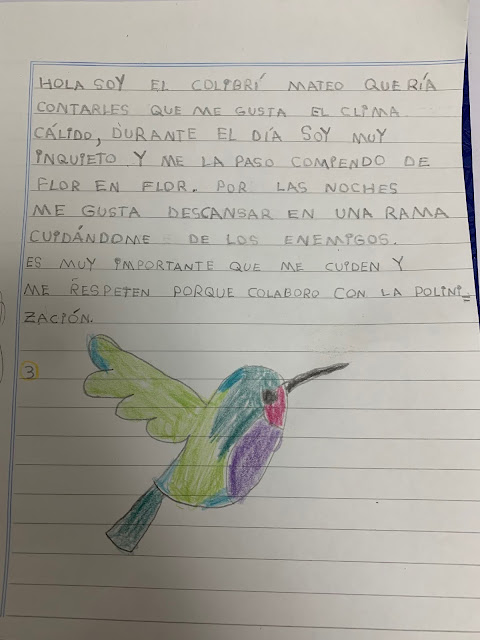 HOLA SOY EL COLIBRÍ MATEO QUERÍA
CONTARLES QUE ME GUSTA EL CLIMA
CÁLIDO, DURANTE EL DÍA SOY MUY
INQUIETO Y ME LA PASO COMIENDO DE
FLOR EN FLOR. POR LAS NOCHES
ME GUSTA DESCANSAR EN UNA RAMA
CUIDÁNDOME DE LOS ENEMIGOS.
ES MUY IMPORTANTE QUE ME CUIDEN Y
ME RESPETEN PORQUE COLABORO CON LA POLINI-
ZACIÓN.
3